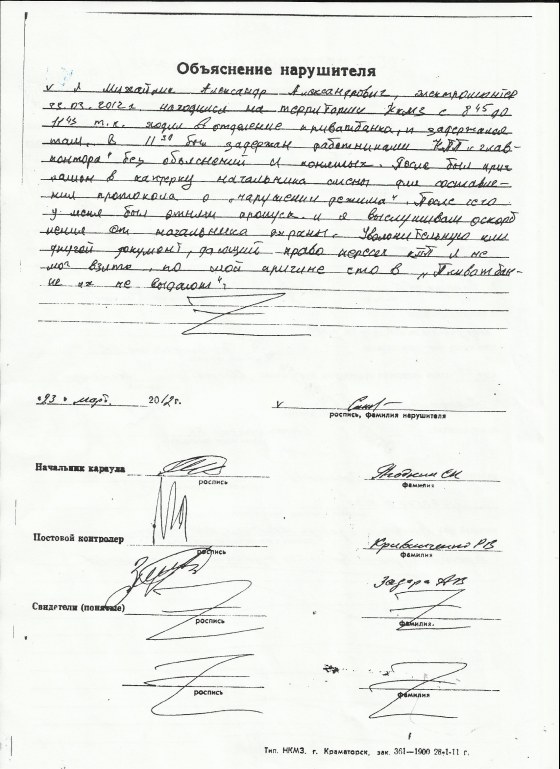 Объяснение нарушителя
v я Михайлик Александр Александрович, электромонтер
23.03.2012г. находился на территории НКМЗ с 8 45 до
11 45 т.к. ходил в отделение приватбанка, и задержался
там. В 11 30 был задержан работниками КПП "глав-
контора" без объяснений и понятых. После был приг
лашон в каптерку начальника смены для составле-
ния протокола о "нарушении режима". После чего
у меня был отнят пропуск и я выслушивал оскорб
ления от начальника охраны. Уволнительную или
другой документ, дающий право пересеч КПП я не
мог взять, по той причине что в "Приватбан-
ке их не выдают".
"23" март. 2012г. v
роспись, фамилия нарушителя
Начальник караула
роспись
фамилия
Постовой контролер
роспись
Кривошеенко Р В
фамилия
Задара А В
Свидетели (понятые)
роспись
фамилия.
роспись
фамилия
Тип. НКМЗ, г. Краматорск, зак. 361—1900 28-1-11 г.